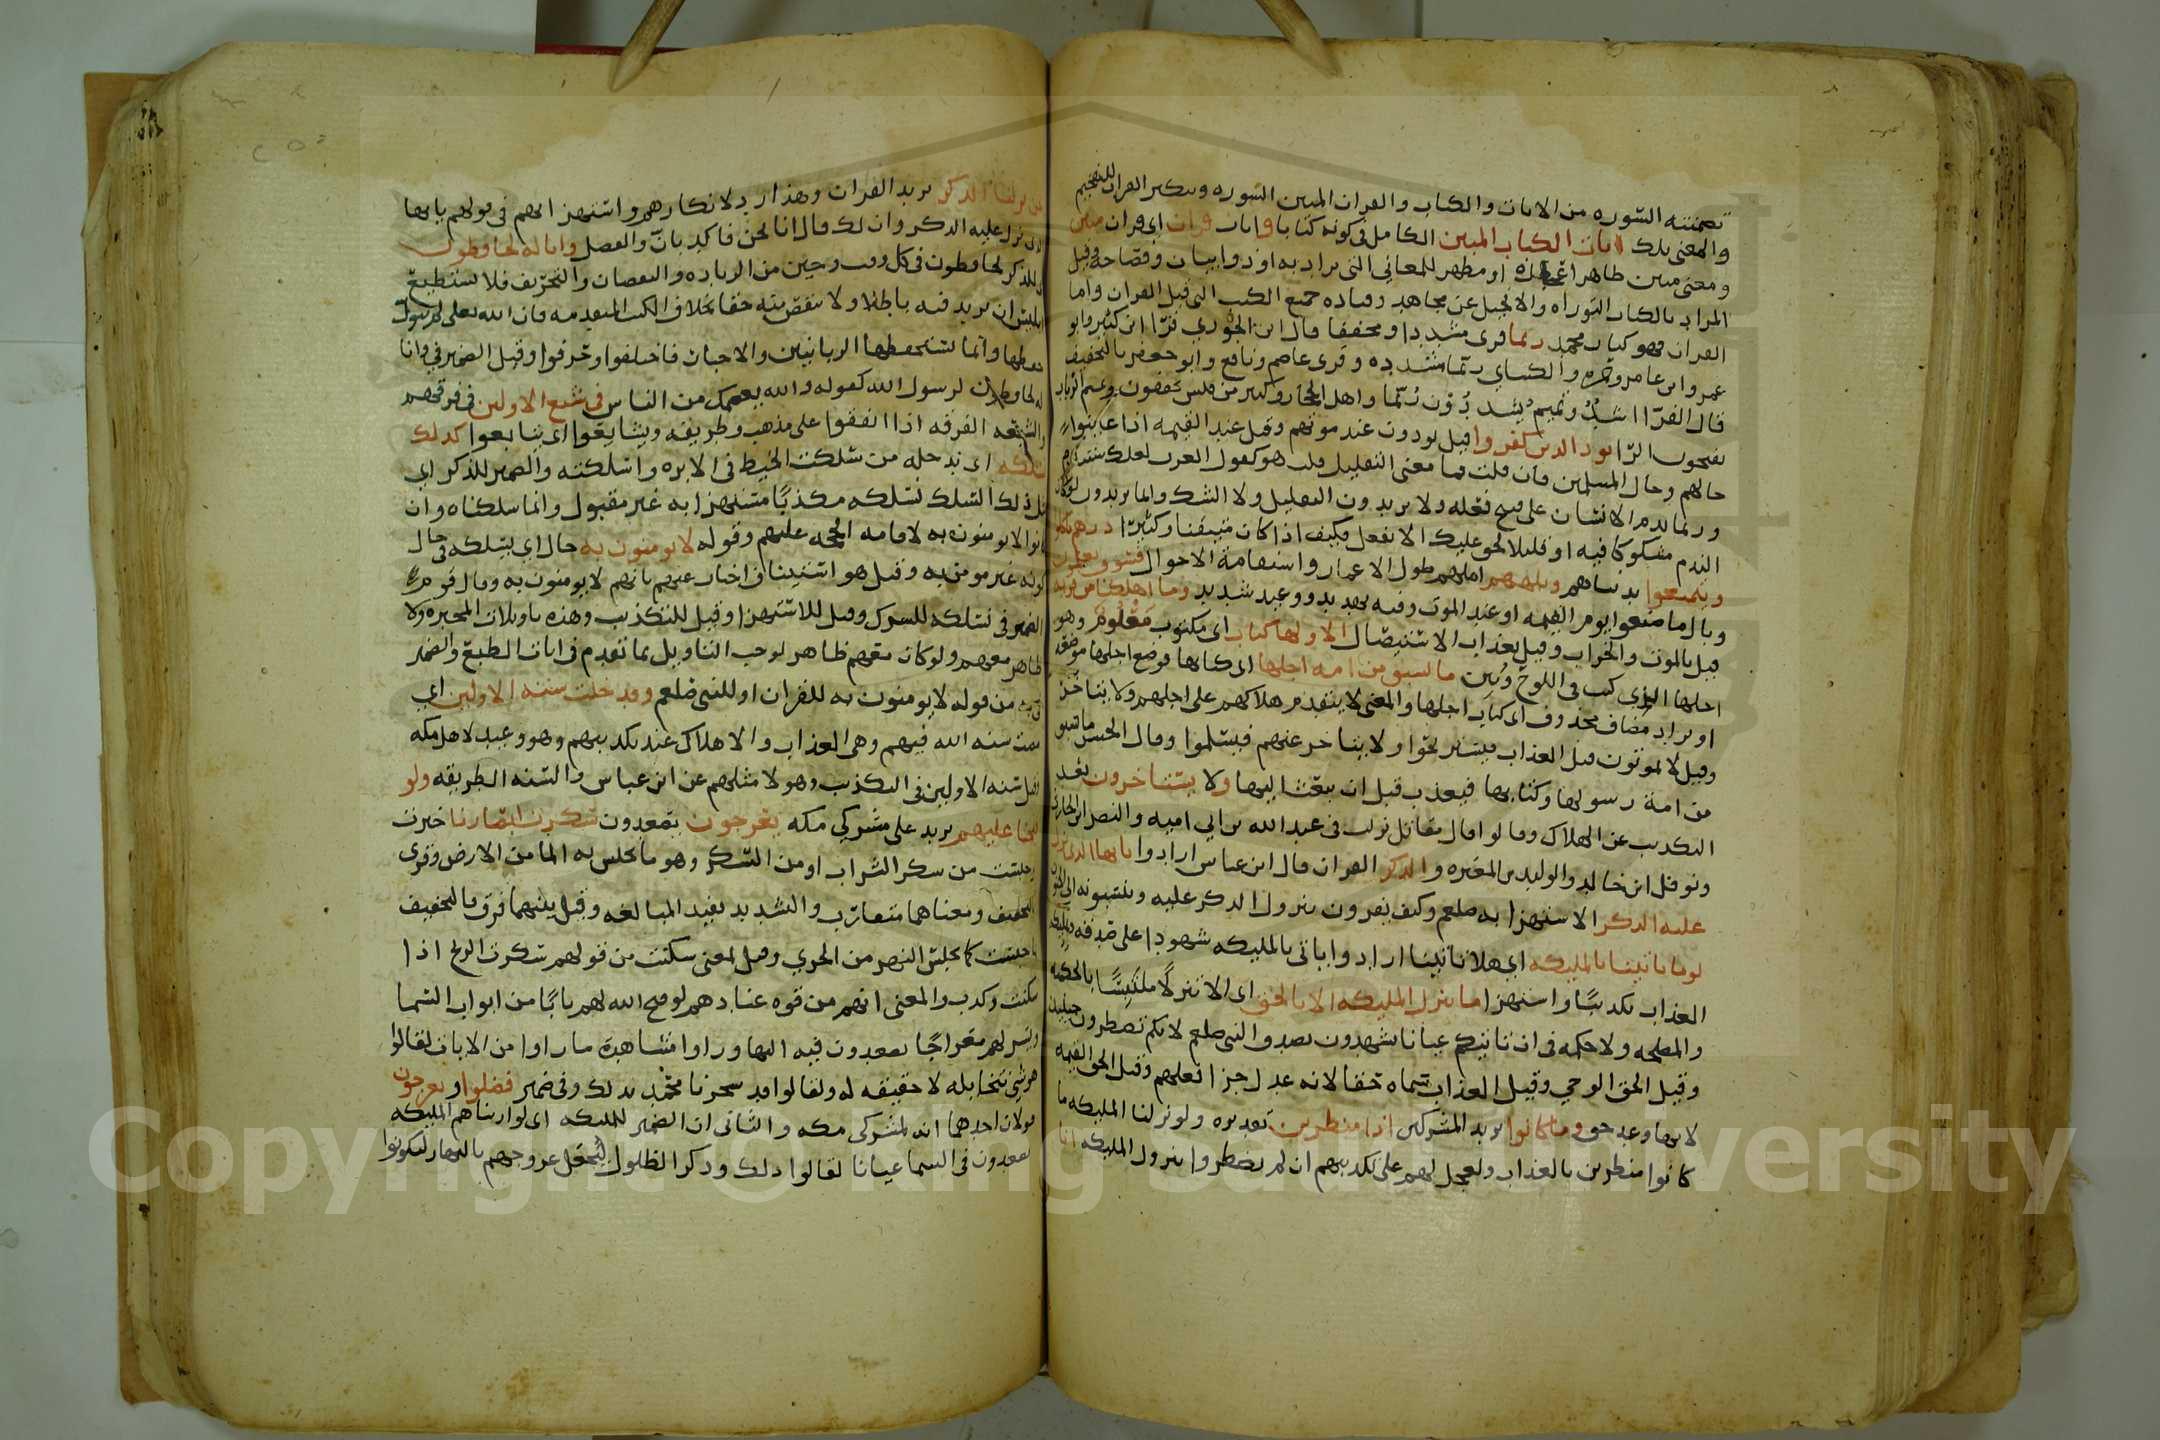 تضمنته السوره من الايات والكتاب والقران المبين السوره وتنكير القران للتفخيم
والمعنى تلك ايات الكتاب المبين الكامل في كونه كتابا وايات قران اي قران مبين
ومعنى مبين ظاهرا او مظهر للمعاني التي يراد به او ذوا بيان وفصاحة وقيل
المراد بالكتاب التوراه والانجيل عن مجاهد وقتاده جميع الكتب التي قبل القران واما
القران فهو كتاب محمد ربما قرى مشددا ومخففا قال ابن الجوزي قرا ابن كثير وابو
عمر وابن عامر وحمزه والكساي ربما مشدده وقرى عاصم ونافع وابو جعفر بالتخفيف
قال الفرا اسد وتميم يشددون ربما واهل الحجاز وكثير من قيس يخففون وتيم الرباب
يفتحون الرا يود الذين كفروا قيل يودون عند موتهم وقيل عند القيمه اذا عاينوا
حالهم وحال المسلمين فان قلت فما معنى التقليل قلت هو كقول العرب لعلك ستندم
وربما ندم الانسان على قبح فعله ولا يريدون التقليل ولا الشك وانما يريدون لو كان
الندم مشكوكا فيه او قليلا لحق عليك الا تفعل فكيف اذا كان متيقنا وكثيرا ذرهم ياكلوا
ويتمتعوا بدنياهم ويلههم املهم طول الاعمار واستقامة الاحوال فسوف يعلمون
وبال ما صنعوا يوم القيمه او عند الموت وفيه تهديد ووعيد شديد وما اهلكنا من قريه
قيل بالموت والخراب وقيل بعذاب الاستيصال الا ولها كتاب اي مكتوب معلوم وهو
اجلها الذي كتب في اللوح وبين ما تسبق من امه اجلها اي كتابها فوضع اجلها موضعه
او يراد مضاف محذوف اي كتاب اجلها والمعنى لا يتقدم هلاكهم على اجلهم ولا يتاخر
وقيل لا يموتون قبل العذاب فيستريحوا ولا يتاخر عنهم فيسلموا وقال الحسن ما تسبق
من امة رسولها وكتابها فيعذب قبل ان يبعث اليها ولا يستاخرون بعد
التكذيب عن الهلاك وقالوا قال مقاتل نزلت في عبد الله بن ابي اميه والنضر ابن الحارث
ونوفل ابن خالد والوليد بن المغيره والذكر القران قال ابن عباس ارادوا يا ايها الذي نزل
عليه الذكر الاستهزا به صلعم وكيف يقرون بنزول الذكر عليه وينسبونه الى الجنون
لوما تاتينا بالمليكه اي هلا تاتينا ارادوا باتي بالمليكه شهودا على صدقه
العذاب تكذيبا واستهزا ما ننزل المليكه الا بالحق اي الا تنزلا ملتبسا بالحكمه
والمصلحه ولا حكمه في ان تاتيكم عيانا تشهدون بصدق النبي صلعم لانكم تضطرون حينيذ
وقيل الحق الوحي وقيل العذاب سماه حقا لانه عدل جزا فعلهم وقيل الحق القيمه
لانها وعد حق وما كانوا يريد المشركين اذا منظرين تقديره ولو نزلنا المليكه ما
كانوا منظرين بالعذاب ولعجل لهم على تكذيبهم ان لم يضطروا بنزول المليكه انا
نحن نزلنا الذكر يريد القران وهذا رد لانكارهم واستهزايهم في قولهم يا ايها
الذي نزل عليه الذكر وان لك قال انا نحن فاكد بان والفصل وانا له لحافظون
للذكر لحافظون في كل وقت وحين من الزياده والنقصان والتحريف فلا يستطيع
ابليس ان يزيد فيه باطلا ولا ينقص منه حقا بخلاف الكتب المتقدمه فان الله تعلى لم يتول
حفظها وانما استحفظها الربانيين والاحبار فاختلفوا وحرفوا وقيل الضمير في وانا
له لحافظون لرسول الله كقوله والله يعصمك من الناس في شيع الاولين في فرقهم
والشيعه الفرقه اذا اتفقوا على مذهب وطريقه ويشايعوا اي يتابعوا كذلك
نسلكه اي ندخله من سلكت الخيط في الابره واسلكته والضمير للذكر اي
مثل ذلك السلك نسلكه مكذبا مستهزا به غير مقبول وانما سلكناه وان
كانوا لا يومنون به لاقامه الحجه عليهم وقوله لا يومنون به حال اي يسلكه في حال
كونه غير مومن به وقيل هو استيناف اخبار عنهم بانهم لا يومنون به وقال قوم
الضمير في نسلكه للشرك وقيل للاستهزا وقيل للتكذيب وهذه تاويلات المجبره ولا
ظاهر معهم ولو كان معهم ظاهر لوجب التاويل بما تقدم في ايات الطبع والضمير
في به من قوله لا يومنون به للقران او للنبي صلعم وقد خلت سنه الاولين اي
مضت سنه الله فيهم وهي العذاب والاهلاك عند تكذيبهم وهو وعيد لاهل مكه
وقيل سنه الاولين في التكذيب وهولا مثلهم عن ابن عباس والسنه الطريقه ولو
فتحنا عليهم يريد على مشركي مكه يعرجون يصعدون سكرت ابصارنا حيرت
وحبست من سكر الشراب او من السكر وهو ما يحبس به الما من الارض وقرى
بالتخفيف ومعناهما متقارب والتشديد يفيد المبالغه وقيل بينهما فرق فالتخفيف
حبست كما يحبس النهر من الجري وقيل لمعنى سكنت من قولهم سكرت الريح اذا
سكنت وركدت والمعنى انهم من قوه عنادهم لو فتح الله لهم بابا من ابواب السما
ويسر لهم معراجا يصعدون فيه اليها وراوا مشاهده ما راوا من الايات لقالوا
هو شي نتخايله لا حقيقه له ولقالوا قد سحرنا محمد بذلك وفي ضمير فظلوا ويعرجون
قولان احدهما انه لمشركي مكه والثاني ان الضمير للمليكه اي لو اريناهم المليكه
يصعدون في السما عيانا لقالوا ذلك وذكر الظلول ليجعل عروجهم بالنهار ليكونوا
Copyright © King Saud University